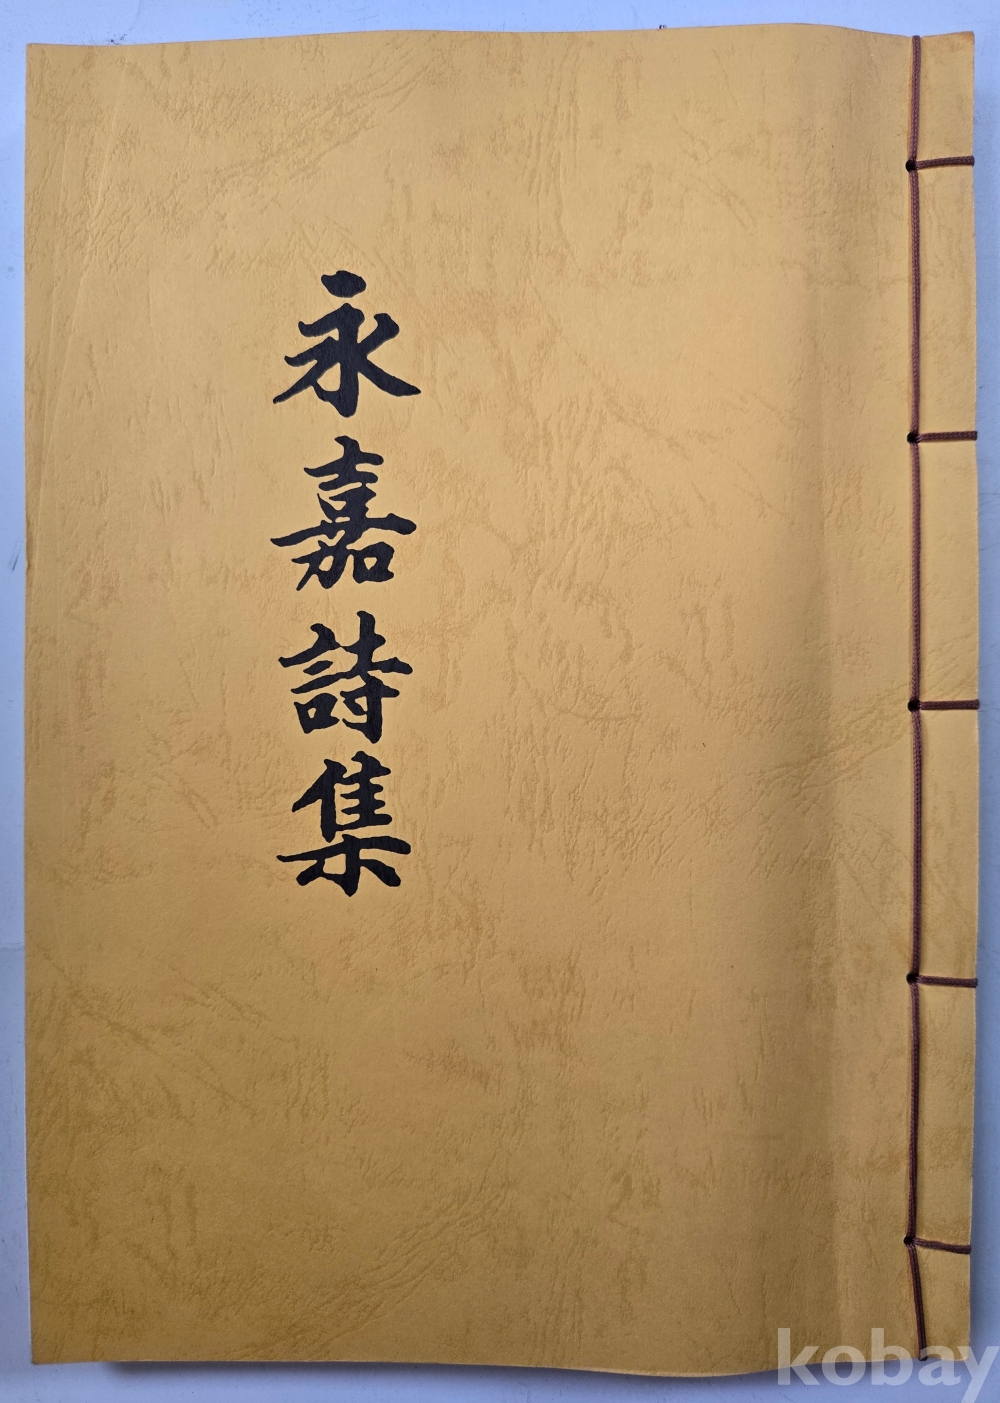 永嘉詩集
kobay